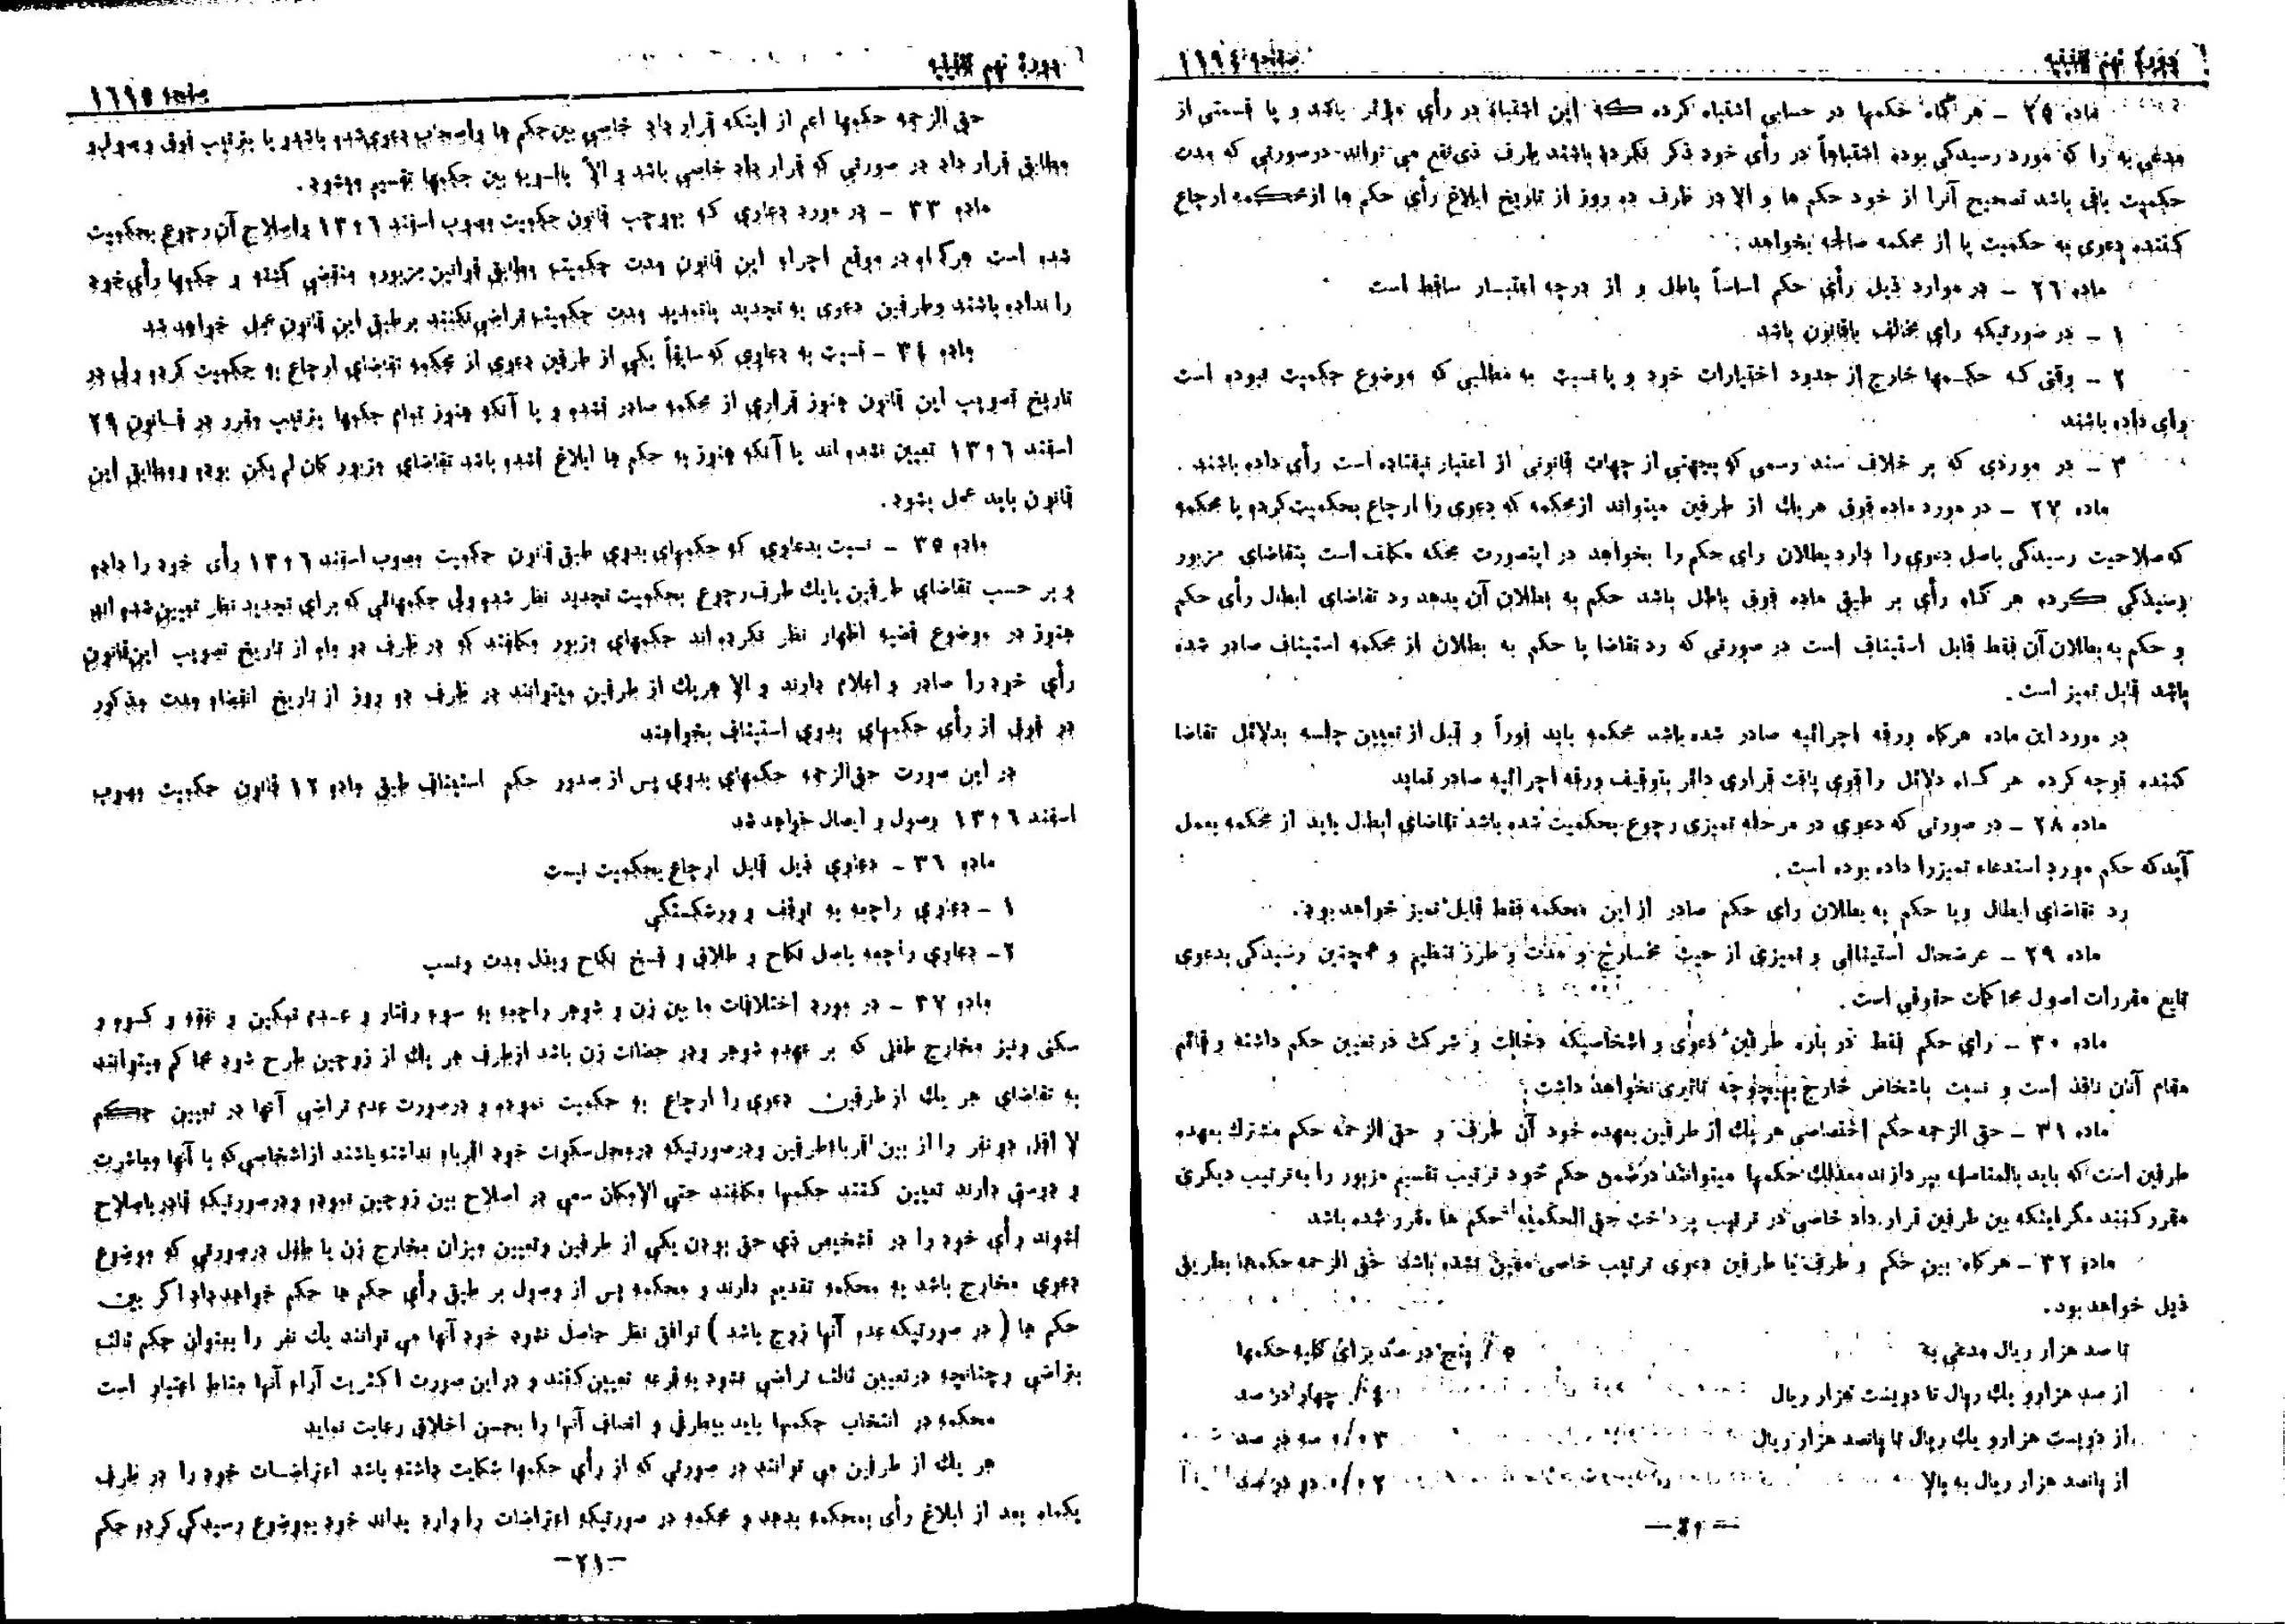 دورهٔ نهم تقنینیه
صفحه ۱۶۹۴
ماده ۲۵ - هر گاه حکمها در حسابی اشتباه کرده که این اشتباه در رأی مؤثر باشد و یا قسمتی از
مدعی به را که مورد رسیدگی بوده اشتباهاً در رأی خود ذکر نکرده باشند طرف ذی نفع می تواند در صورتی که مدت
حکمیت باقی باشد تصحیح آنرا از خود حکم ها و الا در ظرف ده روز از تاریخ ابلاغ رأی حکم ها از محکمه ارجاع
کننده دعوی به حکمیت یا از محکمه صالحه بخواهد.
ماده ۲۶ - در موارد ذیل رأی حکم اساساً باطل و از درجه اعتبار ساقط است
۱ - در صورتیکه رأی مخالف باقانون باشد
۲ - وقتی که حکمها خارج از حدود اختیارات خود و یا نسبت به مطلبی که موضوع حکمیت نبوده است
رأی داده باشند
۳ - در موردی که بر خلاف سند رسمی که بجهتی از جهات قانونی از اعتبار نیفتاده است رأی داده باشند.
ماده ۲۷ - در مورد ماده فوق هر یك از طرفین میتواند از محکمه که دعوی را ارجاع بحکمیت کرده یا محکمه
که صلاحیت رسیدگی باصل دعوی را دارد بطلان رای حکم را بخواهد در اینصورت محکمه مکلف است بتقاضای مزبور
رسیدگی کرده هر گاه رأی بر طبق ماده فوق باطل باشد حکم به بطلان آن بدهد رد تقاضای ابطال رأی حکم
و حکم به بطلان آن فقط قابل استیناف است در صورتی که رد تقاضا یا حکم به بطلان از محکمه استیناف صادر شده
باشد قابل تمیز است.
در مورد این ماده هرگاه ورقه اجرائیه صادر شده باشد محکمه باید فوراً و قبل از تعیین جلسه بدلائل تقاضا
کننده توجه کرده هر گاه دلائل را قوی یافت قراری دائر بتوقیف ورقه اجرائیه صادر نماید
ماده ۲۸ - در صورتی که دعوی در مرحله تمیزی رجوع بحکمیت شده باشد تقاضای ابطال باید از محکمه بعمل
آید که حکم مورد استدعاء تمیز را داده بوده است.
رد تقاضای ابطال ویا حکم به بطلان رای حکم صادر از این محکمه فقط قابل تمیز خواهد بود.
ماده ۲۹ - عرضحال استینافی و تمیزی از حیث مخارج و مدت و طرز تنظیم و همچنین رسیدگی بدعوی
تابع مقررات اصول محاکمات حقوقی است.
ماده ۳۰ - رأی حکم فقط در باره طرفین دعوی و اشخاصیکه دخالت و شرکت در تعیین حکم داشته و قائم
مقام آنان نافذ است و نسبت باشخاص خارج بهیچوجه تاثیری نخواهد داشت.
ماده ۳۱ - حق الزحمه حکم اختصاصی هر یك از طرفین بعهده خود آن طرف و حق الزحمه حکم مشترك بعهده
طرفین است که باید بالمناصفه بپردازند معذلك حکمها میتوانند در ضمن حکم خود ترتیب تقسیم مزبور را به ترتیب دیگری
مقرر کنند مگر اینکه بین طرفین قرار داد خاصی در ترتیب پرداخت حق الحکمیه حکم ها مقرر شده باشد
ماده ۳۲ - هرگاه بین حکم و طرف یا طرفین دعوی ترتیب خاصی معین نشده باشد حق الزحمه حکمها بطریق
ذیل خواهد بود.
تا صد هزار ریال مدعی به ۵٪ پنج در صد برای کلیه حکمها
از صد هزارو یك ریال تا دویست هزار ریال ۴٪ چهار در صد
از دویست هزارو یك ریال تا پانصد هزار ریال ۳٪ سه در صد
از پانصد هزار ریال به بالا ۲٪ دو در صد
دورهٔ نهم تقنینیه
صفحه ۱۶۹۵
حق الزحمه حکمها اعم از اینکه قرار داد خاصی بین حکم ها واصحاب دعوی شده باشد و یا بترتیب فوق وصول و
مطابق قرار داد در صورتی که قرار داد خاصی باشد و الا بالسویه بین حکمها تقسیم میشود.
ماده ۳۳ - در مورد دعاوی که بموجب قانون حکمیت مصوب اسفند ۱۳۰۶ واصلاح آن رجوع بحکمیت
شده است هرگاه در موقع اجراء این قانون مدت حکمیت مطابق قوانین مزبوره منقضی گشته و حکمها رأی خود
را نداده باشند وطرفین دعوی به تجدید یاتمدید مدت حکمیت تراضی نکنند بر طبق این قانون عمل خواهد شد
ماده ۳۴ - نسبت به دعاوی که سابقاً یکی از طرفین دعوی از محکمه تقاضای ارجاع به حکمیت کرده ولی در
تاریخ تصویب این قانون هنوز قراری از محکمه صادر نشده و یا آنکه هنوز تمام حکمها بترتیب مقرر در قانون ۲۹
اسفند ۱۳۰۶ تعیین نشده اند یا آنکه هنوز به حکم ها ابلاغ نشده باشد تقاضای مزبور کان لم یکن بوده ومطابق این
قانون باید عمل بشود.
ماده ۳۵ - نسبت بدعاوی که حکمهای بدوی طبق قانون حکمیت مصوب اسفند ۱۳۰۶ رأی خود را داده
و بر حسب تقاضای طرفین یایك طرف رجوع بحکمیت تجدید نظر شده ولی حکمهائی که برای تجدید نظر تعیین شده اند
هنوز در موضوع قضیه اظهار نظر نکرده اند حکمهای مزبور مکلفند که در ظرف دو ماه از تاریخ تصویب این قانون
رأی خود را صادر و اعلام دارند و الا هریك از طرفین میتوانند در ظرف ده روز از تاریخ انقضاء مدت مذکور
در فوق از رأی حکمهای بدوی استیناف بخواهند
در این صورت حق الزحمه حکمهای بدوی پس از صدور حکم استیناف طبق ماده ۱۲ قانون حکمیت مصوب
اسفند ۱۳۰۶ وصول و ایصال خواهد شد
ماده ۳۶ - دعاوی ذیل قابل ارجاع بحکمیت نیست
۱ - دعاوی راجعه به توقف و ورشکستگی
۲ - دعاوی راجعه باصل نکاح و طلاق و فسخ نکاح وبذل مدت ونسب
ماده ۳۷ - در مورد اختلافات ما بین زن و شوهر راجعه به سوء رفتار و عدم تمکین و نفقه و کسوه و
سکنی ونیز مخارج طفلی که بر عهده شوهر ودر حضانت زن باشد از طرف هر یك از زوجین طرح شود محاکم میتوانند
به تقاضای هر یك از طرفین دعوی را ارجاع به حکمیت نموده و درصورت عدم تراضی آنها در تعیین حکم
لا اقل دو نفر را از بین اقرباء طرفین ودرصورتیکه درمحل سکونت خود اقرباء نداشته باشند از اشخاصی که با آنها معاشرت
و دوستی دارند تعیین کنند حکمها مکلفند حتی الامکان سعی در اصلاح بین زوجین نموده ودرصورتیکه قادر باصلاح
نشوند رأی خود را در تشخیص ذی حق بودن یکی از طرفین وتعیین میزان مخارج زن یا طفل درصورتی که موضوع
دعوی مخارج باشد به محکمه تقدیم دارند و محکمه پس از وصول بر طبق رأی حکم ها حکم خواهد داد اگر بین
حکم ها ( در صورتیکه عده آنها زوج باشد ) توافق نظر حاصل نشود خود آنها می توانند یك نفر را بعنوان حکم ثالث
بتراضی و چنانچه درتعیین ثالث تراضی نشود به قرعه تعیین کنند و در این صورت اکثریت آراء آنها مناط اعتبار است
محکمه در انتخاب حکمها باید بیطرفی و اتصاف آنها را بحسن اخلاق رعایت نماید
هر یك از طرفین می توانند در صورتی که از رأی حکمها شکایت داشته باشد اعتراضات خود را در ظرف
یکماه بعد از ابلاغ رأی بمحکمه بدهد و محکمه در صورتیکه اعتراضات را وارد بداند خود بموضوع رسیدگی کرده حکم
-۲۱-